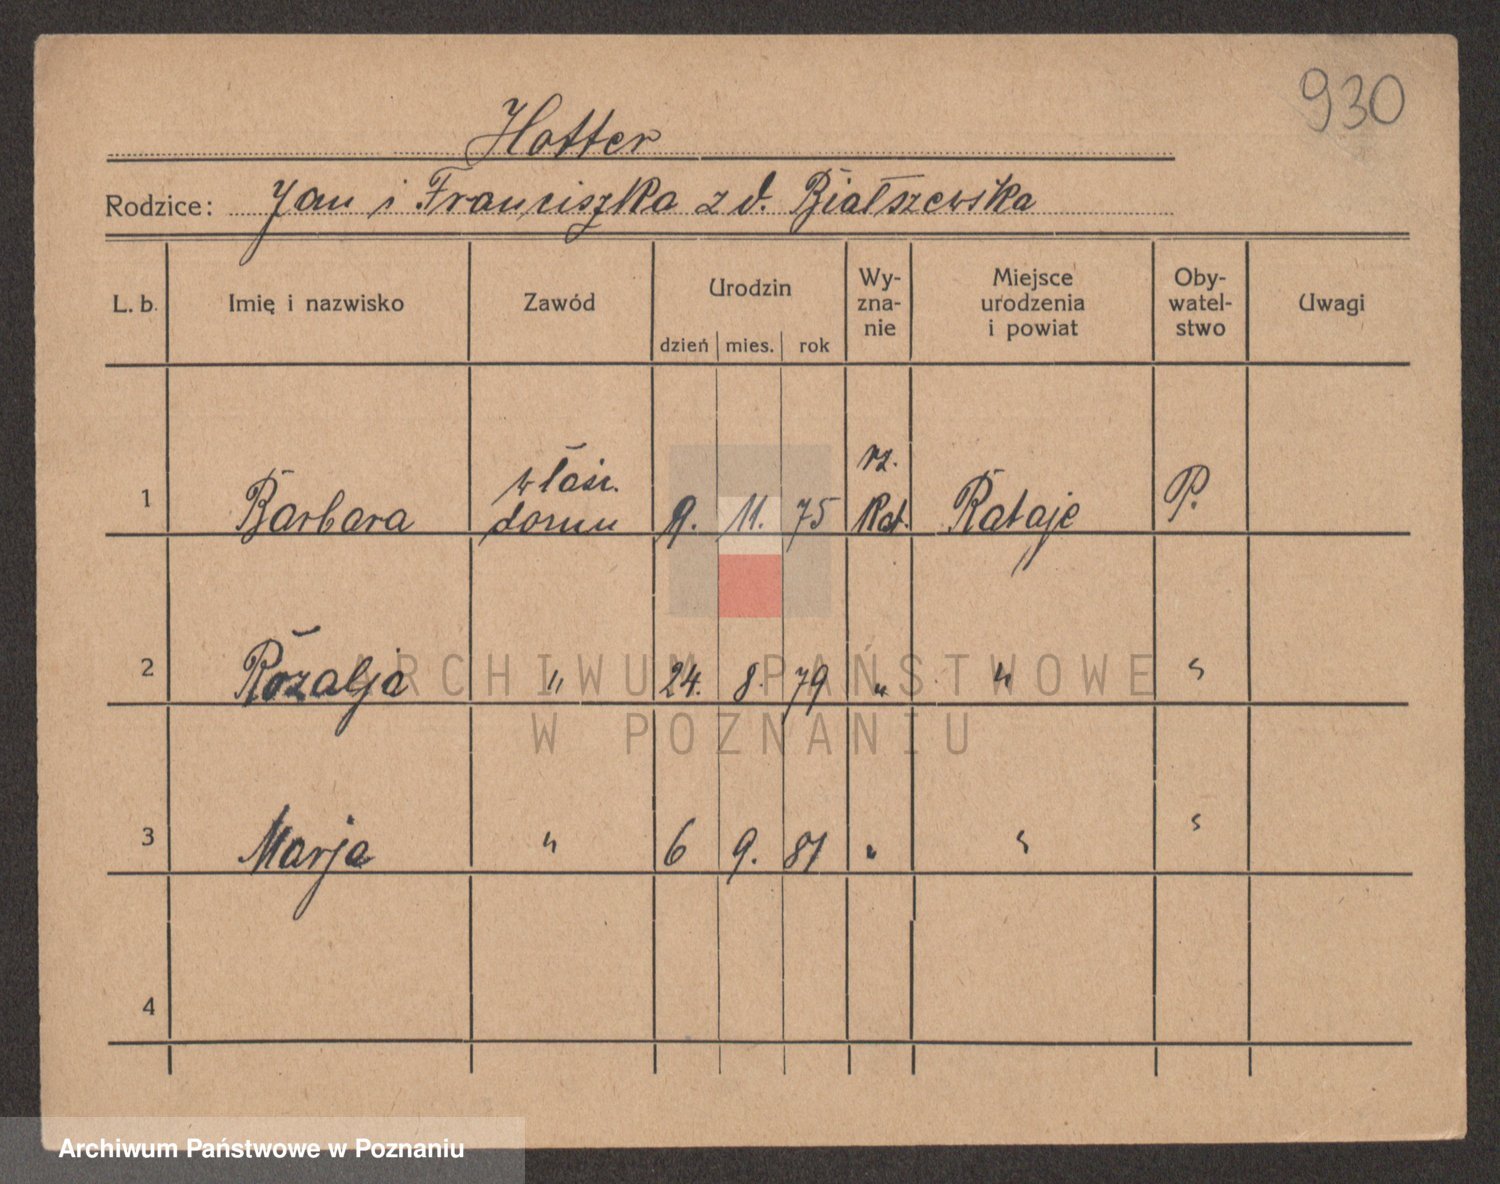 930
Hotter
Rodzice: Jan i Franciszka z d. Białszewska
L. b. Imię i nazwisko Zawód Urodzin dzień mies. rok Wy-zna-nie Miejsce urodzenia i powiat Oby-watel-stwo Uwagi
1 Barbara właśc. domu 11. 75 rz. Kat. Rataje P.
2 Rozalja " 24. 8. 79 " " "
3 Marja " 6 9. 81 " " "
4
ARCHIWUM PAŃSTWOWE
W POZNANIU
Archiwum Państwowe w Poznaniu